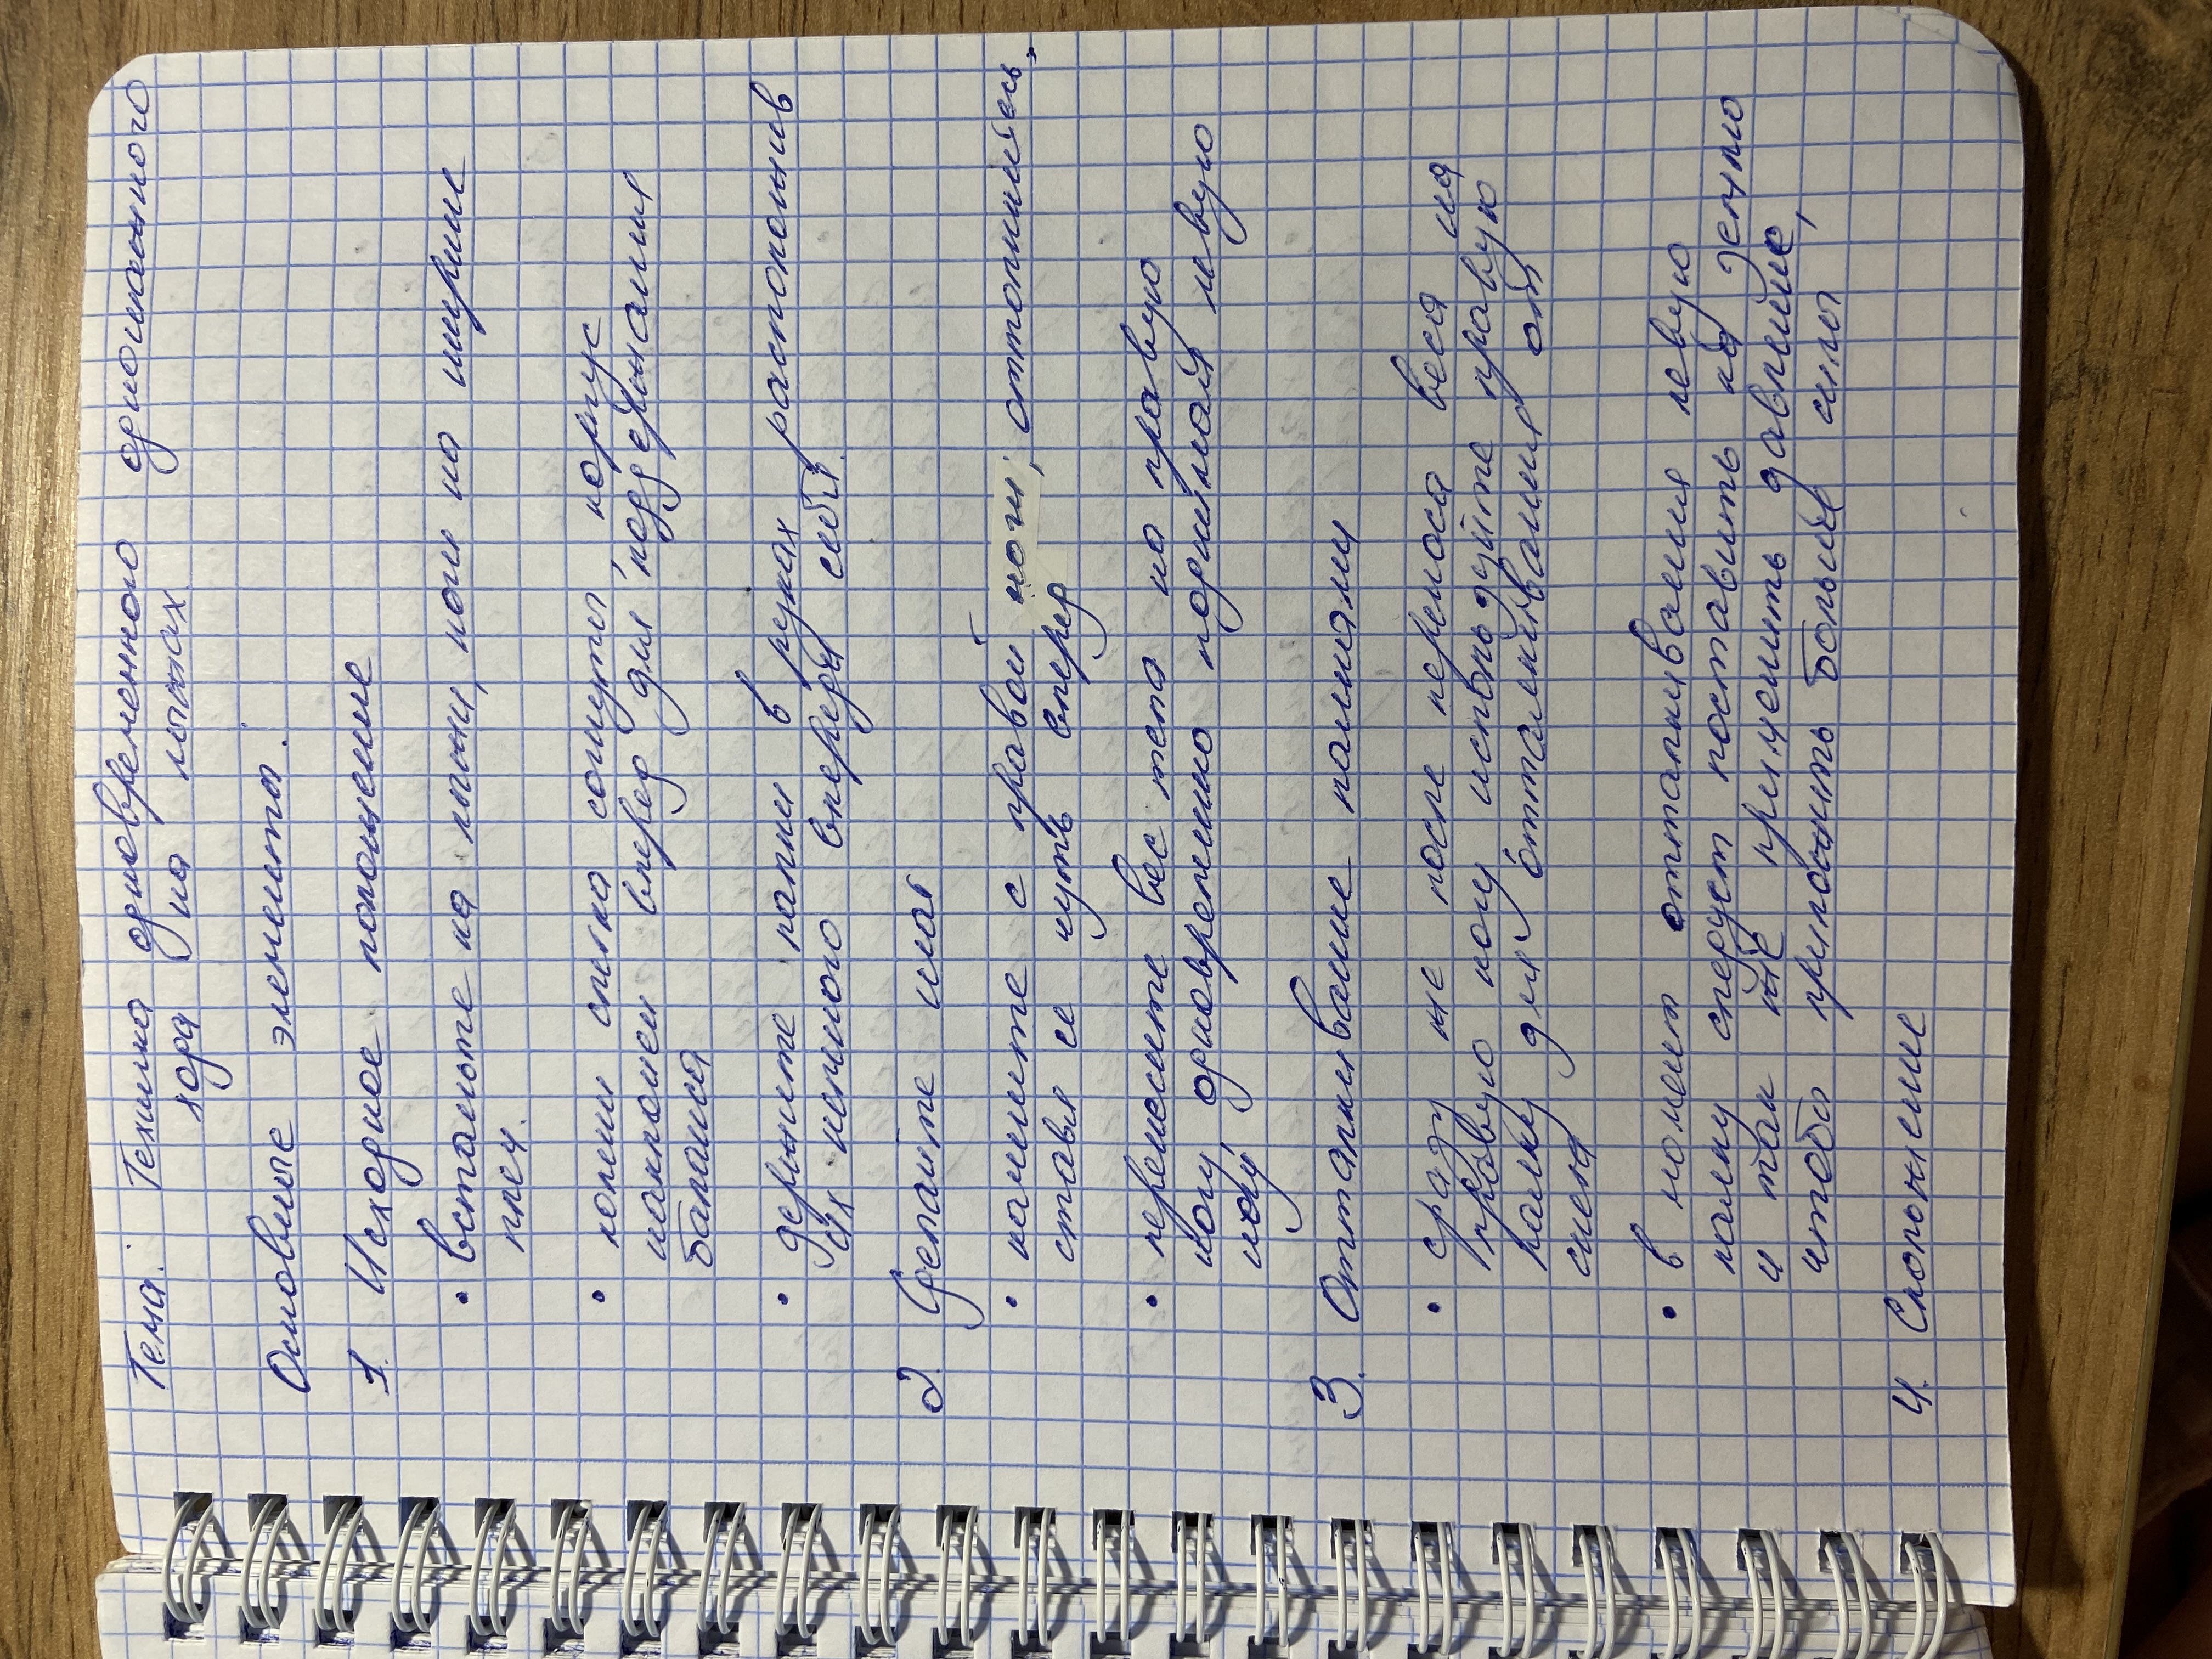 Тема: Техника одновременного одношажного
хода на лыжах
Основные элементы.
1. Исходное положение
• встаньте на лыжи, ноги на ширине
плеч.
• колени слегка согнуты, корпус
наклонен вперед для поддержания
баланса
• держите палки в руках расположив
их немного впереди себя.
2. Сделайте шаг
• начините с правой ноги, оттолкнитесь,
ставя её чуть вперед
• перенесите вес тела на правую
ногу, одновременно поднимая левую
ногу
3. Отталкивание палками
• сразу же после переноса веса на
правую ногу используйте правую
палку для отталкивания от
снега
• в момент отталкивания левую
палку следует поставить на землю
и так же приуешить давление,
чтобы приложить больше силы
4. Скольжение